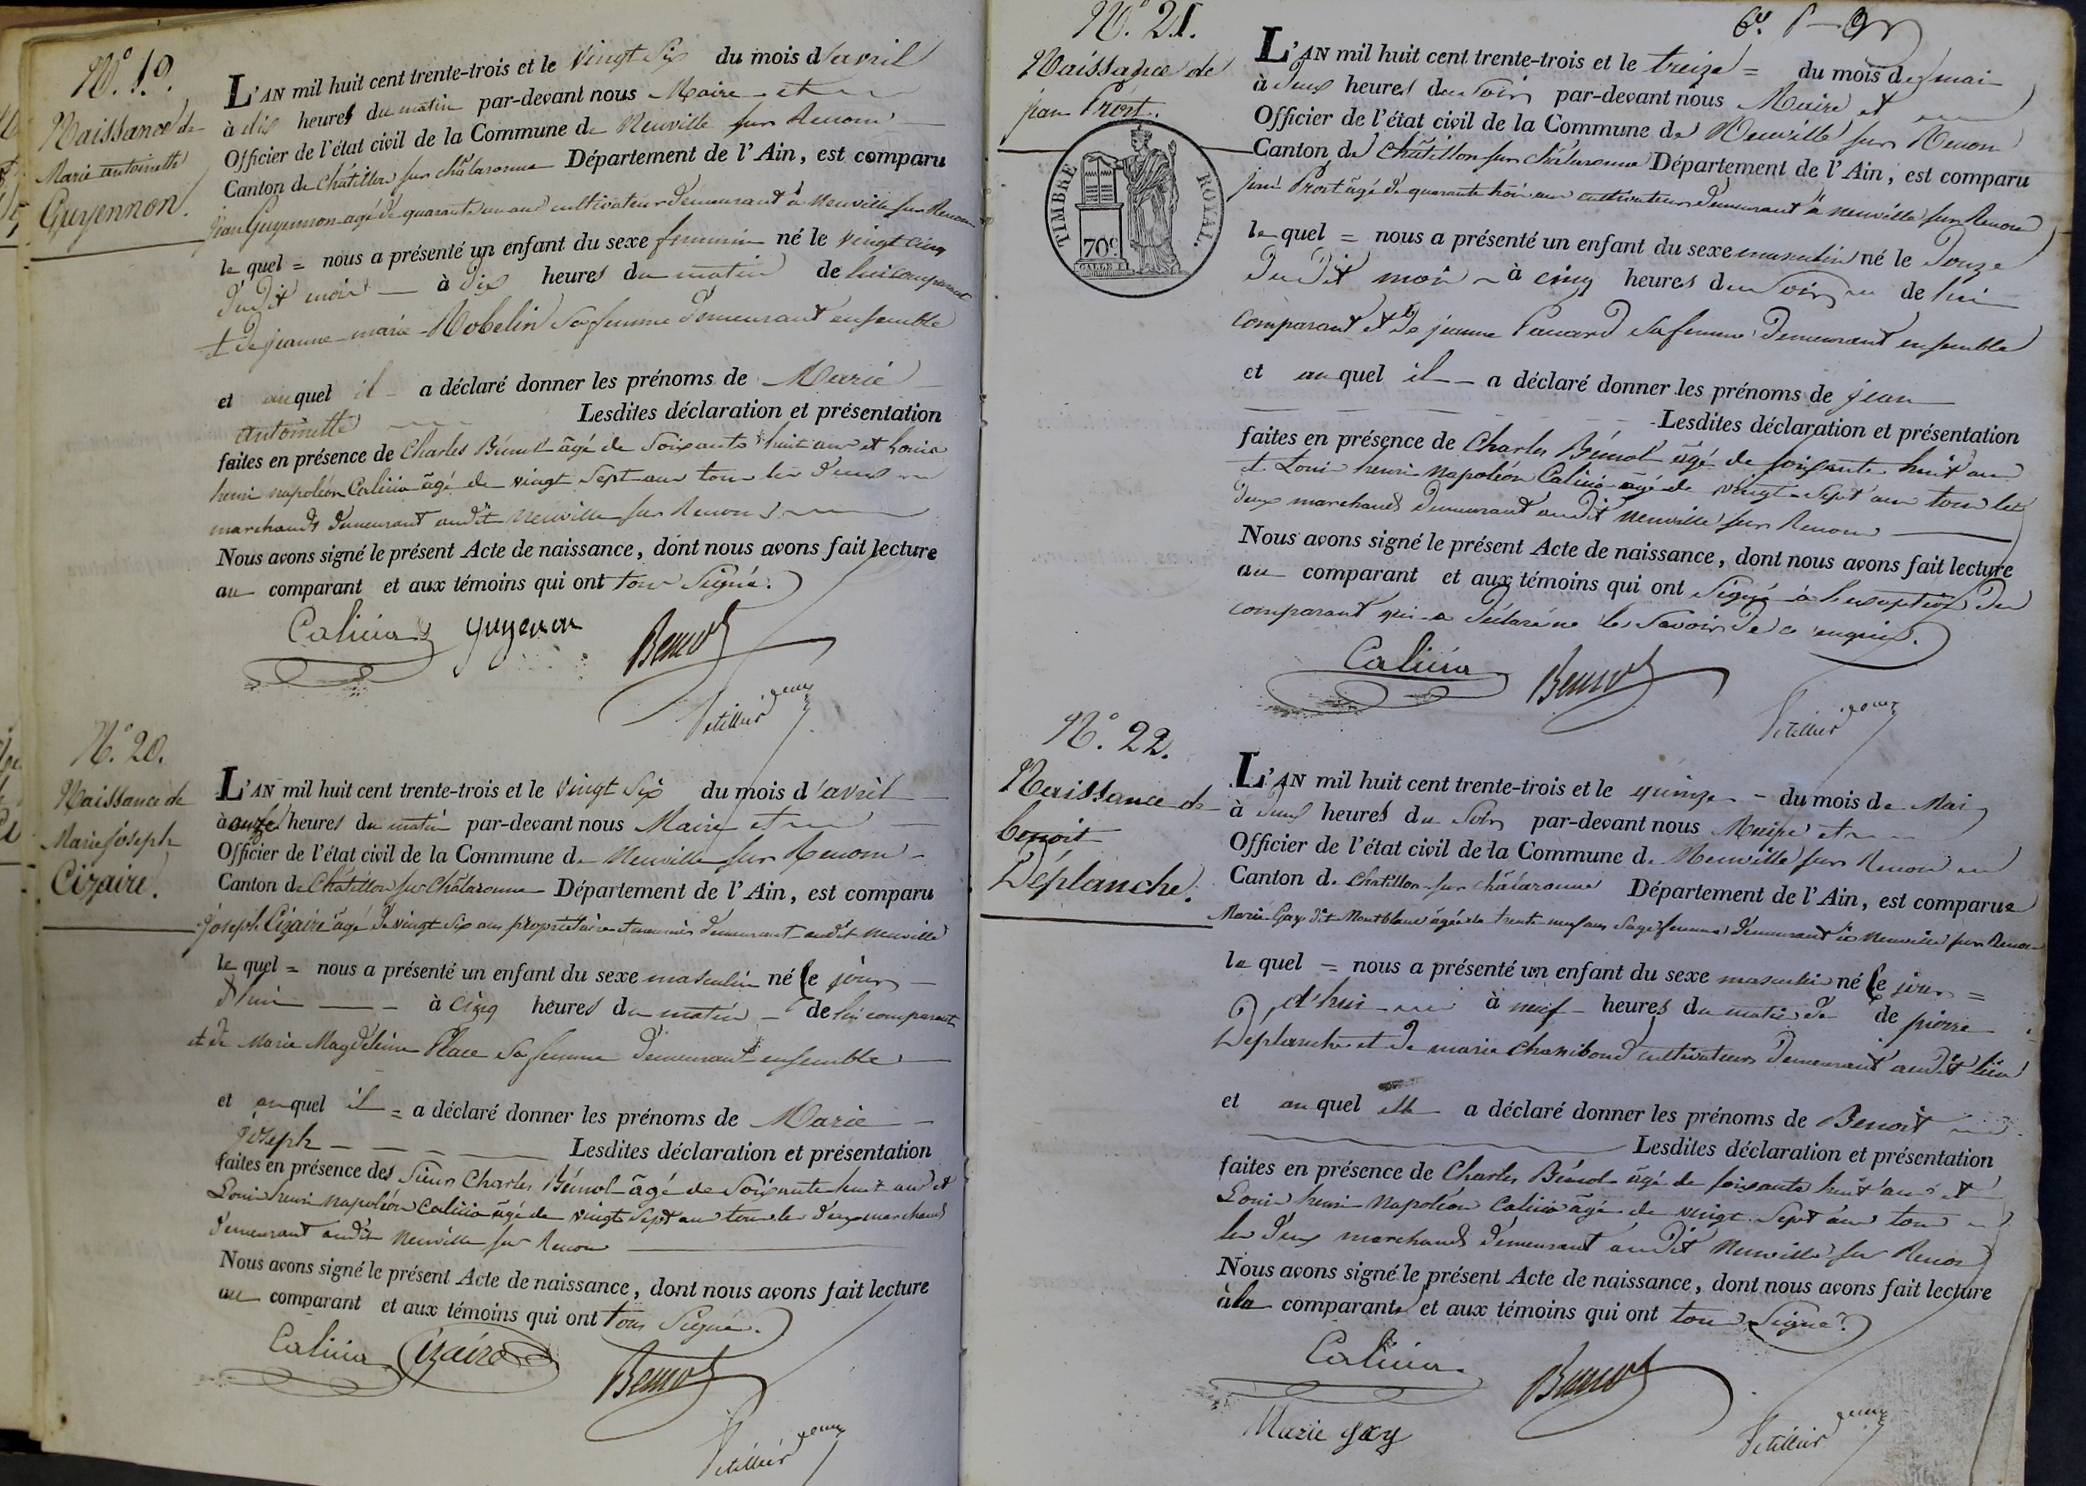 N.° 19.
Naissance de
Marie antoinette
Guyennon.
L'AN mil huit cent trente-trois et le vingt Six du mois d'avril
à dix heures du matin par-devant nous Maire et
Officier de l'état civil de la Commune de Neuville sur Renom
Canton de Châtillon sur Chalaronne Département de l'Ain, est comparu
jean Guyennon agé de quarante un ans cultivateur demeurant à Neuville sur Renom
le quel = nous a présenté un enfant du sexe feminin né le vingt cinq
dudit mois — à dix heures du matin de lui comparant
et de jeanne marie Robelin Sa femme demeurant ensemble
et auquel il a déclaré donner les prénoms de Marie
antoinette Lesdites déclaration et présentation
faites en présence de Charles Bénot âgé de Soixante huit ans et Louis
henri napoléon Calicia âgé de vingt Sept ans tous les deux
marchands demeurant audit Neuville sur Renom
Nous avons signé le présent Acte de naissance, dont nous avons fait lecture
au comparant et aux témoins qui ont tous Signé.
Calicia guyenon Benot
N.° 20.
Naissance de
Marie joseph
Cizaire.
L'AN mil huit cent trente-trois et le vingt Six du mois d'avril
à onze heures du matin par-devant nous Maire et
Officier de l'état civil de la Commune de Neuville sur Renom
Canton de Châtillon sur Châlaronne Département de l'Ain, est comparu
joseph Cizaire âgé de vingt Six ans propriétaire et demeurant audit Neuville
le quel = nous a présenté un enfant du sexe masculin né le jour
d'hui — à cinq heures du matin — de lui comparant
et de Marie Magdeleine Place Sa femme demeurant ensemble
et auquel il = a déclaré donner les prénoms de Marie
joseph — Lesdites déclaration et présentation
faites en présence des Sieurs Charles Bénot âgé de Soixante huit ans et
Louis henri napoléon Calicia âgé de vingt Sept ans tous les deux marchands
demeurant audit Neuville sur Renom
Nous avons signé le présent Acte de naissance, dont nous avons fait lecture
au comparant et aux témoins qui ont tous Signé.
Calicia Cizaire Benot
N.° 21.
Naissance de
jean Prost.
TIMBRE ROYAL.
70 c
L'AN mil huit cent trente-trois et le treize = du mois de mai
à deux heures du Soir par-devant nous Maire et
Officier de l'état civil de la Commune de Neuville sur Renom
Canton de Châtillon sur châlaronne Département de l'Ain, est comparu
jean Prost âgé de quarante trois ans cultivateur demeurant à Neuville sur Renom
le quel = nous a présenté un enfant du sexe masculin né le Douze
dudit mois — à cinq heures du Soir de lui
comparant et de jeanne Pauard Sa femme demeurant ensemble
et auquel il — a déclaré donner les prénoms de jean
Lesdites déclaration et présentation
faites en présence de Charles Bénot âgé de soixante huit ans
et Louis henri Napoléon Calicia agé de vingt Sept ans tous les
deux marchands demeurant audit Neuville sur Renom
Nous avons signé le présent Acte de naissance, dont nous avons fait lecture
au comparant et aux témoins qui ont Signé à l'exception du
comparant qui a déclaré ne le Savoir de ce enquis.
Calicia Benot
N.° 22.
Naissance de
benoit
Déplanche.
L'AN mil huit cent trente-trois et le quinze — du mois de Mai
à deux heures du Soir par-devant nous Maire et
Officier de l'état civil de la Commune de Neuville sur Renom
Canton de Chatillon sur châlaronne Département de l'Ain, est comparue
Marie Gay dit Montblanc âgée de trente neuf ans Sage femme demeurant à Neuville sur Renom
la quel = nous a présenté un enfant du sexe masculin né le jour =
d'hui à neuf heures du matin de pierre
Deplanche et de marie Chaniboud cultivateurs demeurant audit lieu
et auquel elle a déclaré donner les prénoms de Benoit
Lesdites déclaration et présentation
faites en présence de Charles Bénot âgé de soixante huit ans et
Louis henri Napoléon Calicia âgé de vingt Sept ans tous
les deux marchands demeurant audit Neuville sur Renom
Nous avons signé le présent Acte de naissance, dont nous avons fait lecture
à la comparante et aux témoins qui ont tous Signé.
Calicia Benot
Marie gay